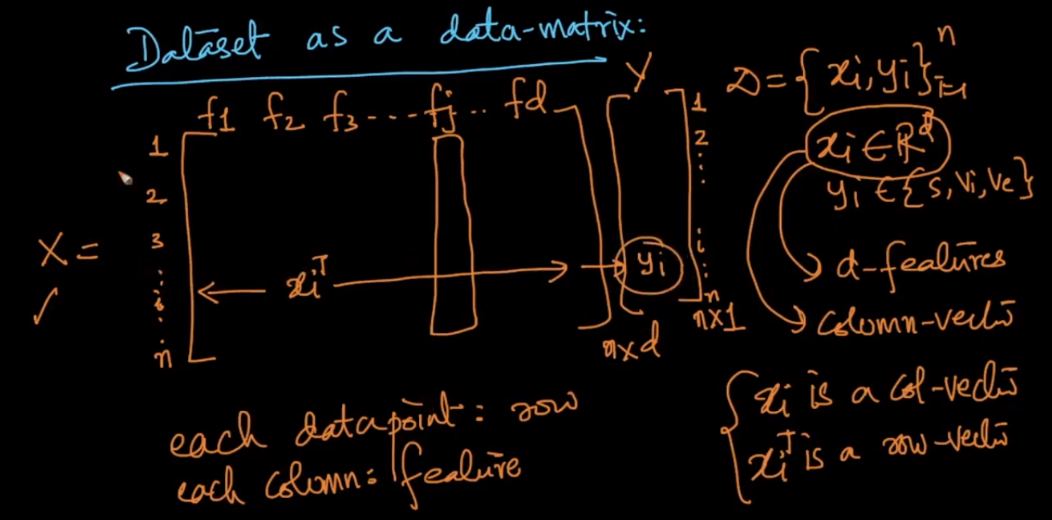 Dataset as a data-matrix:
f1 f2 f3 - - - - fj .. fd
Y
D = {xi, yi}ⁿi=1
1
2
3
:
i
:
n
X =
xiᵀ
yi
n x d
1
2
:
i
:
n
n x 1
xi ∈ ℝᵈ
yi ∈ {S, Vi, Ve}
d-features
column-vector
each datapoint: row
each column: feature
xi is a col-vector
xiᵀ is a row-vector